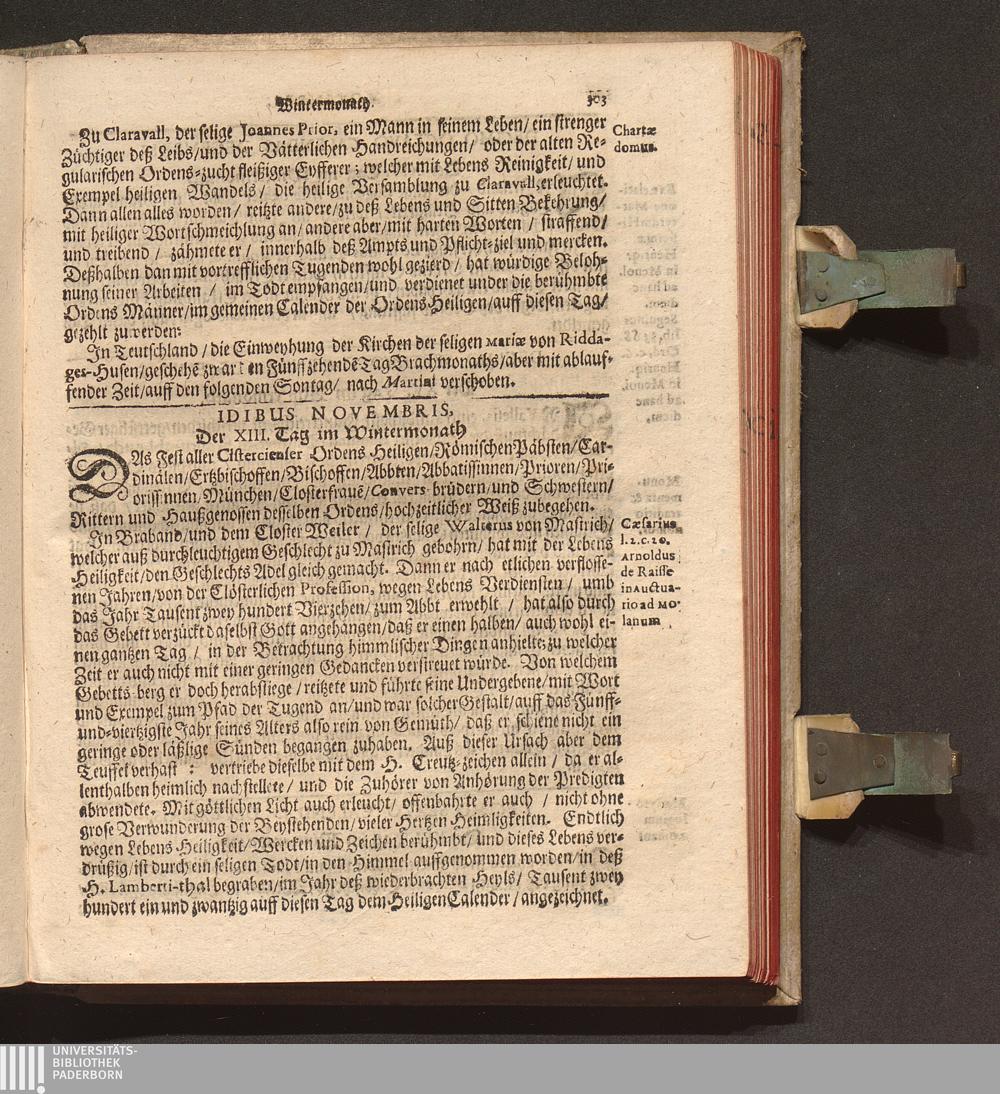 Wintermonath. 303
Zu Claravall, der selige Joannes Prior, ein Mann in seinem Leben/ ein strenger
Züchtiger deß Leibs/und der Vätterlichen Handreichungen/ oder der alten Re-
gularischen Ordens-zucht fleißiger Eyfferer; welcher mit Lebens Reinigkeit/ und
Exempel heiligen Wandels/ die heilige Versamblung zu Claravall, erleuchtet.
Dann allen alles worden/ reitzte andere/zu deß Lebens und Sitten Bekehrung/
mit heiliger Wortschmeichlung an/ andere aber/mit harten Worten / straffend/
und treibend / zähmete er / innerhalb deß Ampts und Pflicht-ziel und mercken.
Deßhalben dan mit vortrefflichen Tugenden wohl gezierd / hat würdige Beloh-
nung seiner Arbeiten / im Todt empfangen/und verdienet under die berühmbte
Ordens Männer/im gemeinen Calender der Ordens Heiligen/auff diesen Tag/
gezehlt zu werden:
Chartæ
domus.
In Teutschland / die Einweyhung der Kirchen der seligen Mariæ von Ridda-
ges-Husen/geschehē zwar den Fünffzehende Tag Brachmonaths/aber mit ablauf-
fender Zeit/auff den folgenden Sontag/ nach Martini verschoben.
IDIBUS NOVEMBRIS,
Der XIII. Tag im Wintermonath
DAs Fest aller Cistercienser Ordens Heiligen/Römischen Päbsten/Car-
dinälen/Ertzbischoffen/Bischoffen/Abbten/Abbatissinnen/Prioren/Pri-
orissinnen/München/Closterfrauē/Convers-brüdern/und Schwestern/
Rittern und Haußgenossen desselben Ordens/hochzeitlicher Weiß zubegehen.
In Braband/und dem Closter Weiler / der selige Walterus von Mastrich/
welcher auß durchleuchtigem Geschlecht zu Mastrich gebohrn/ hat mit der Lebens
Heiligkeit/den Geschlechts Adel gleich gemacht. Dann er nach etlichen verflosse-
nen Jahren/von der Clösterlichen Profession, wegen Lebens Verdiensten / umb
das Jahr Tausent zwey hundert Vierzehen/ zum Abbt erwehlt / hat also durch
das Gebett verzückt daselbst Gott angehangen/daß er einen halben/ auch wohl ei-
nen gantzen Tag / in der Betrachtung himmlischer Dingen anhielte; zu welcher
Zeit er auch nicht mit einer geringen Gedancken verstreuet würde. Von welchem
Gebetts-berg er doch herabstiege / reitzete und führte seine Undergebene/mit Wort
und Exempel zum Pfad der Tugend an/und war solcher Gestalt/auff das Fünff-
und-viertzigste Jahr seines Alters also rein von Gemüth/ daß er schiene nicht ein
geringe oder läßlige Sünden begangen zuhaben. Auß dieser Ursach aber dem
Teuffel verhast : vertriebe dieselbe mit dem H. Creutz-zeichen allein / da er al-
lenthalben heimlich nachstellete/ und die Zuhörer von Anhörung der Predigten
abwendete. Mit göttlichen Licht auch erleucht/ offenbahrte er auch / nicht ohne
grose Verwunderung der Beystehenden/ vieler Hertzen Heimligkeiten. Endtlich
wegen Lebens Heiligkeit/Wercken und Zeichen berühmbt/ und dieses Lebens ver-
drüßig/ist durch ein seligen Todt/in den Himmel auffgenommen worden/ in deß
H. Lamberti-thal begraben/im Jahr deß wiederbrachten Heyls/ Tausent zwey
hundert ein und zwantzig auff diesen Tag dem Heiligen Calender / angezeichnet.
Cæsarius
l. 2. c. 20.
Arnoldus
de Raisse
in Auctua-
rio ad Mo-
lanum
UNIVERSITÄTS-
BIBLIOTHEK
PADERBORN